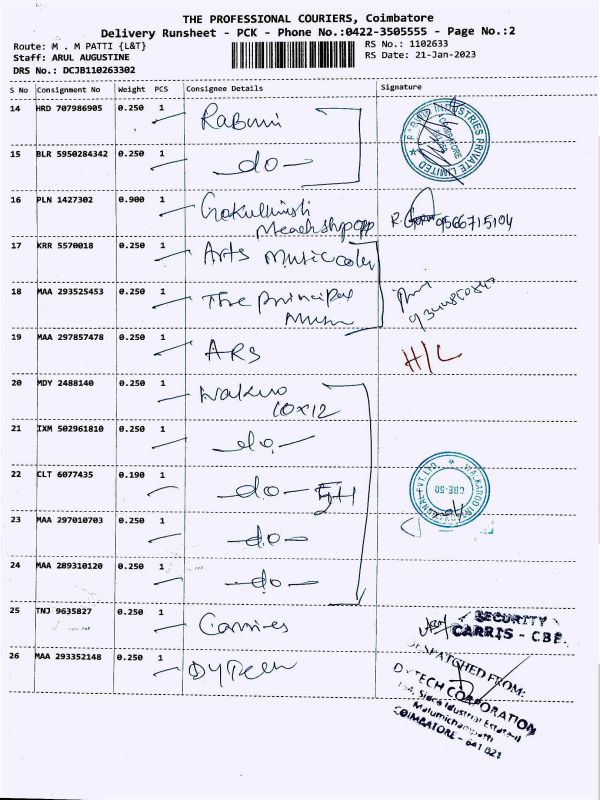 THE PROFESSIONAL COURIERS, Coimbatore
Delivery Runsheet - PCK - Phone No.:0422-3505555 - Page No.:2
Route: M . M PATTI {L&T}
RS No.: 1102633
Staff: ARUL AUGUSTINE
RS Date: 21-Jan-2023
DRS No.: DCJB110263302
S No Consignment No Weight PCS Consignee Details Signature
14 HRD 707986905 0.250 1
15 BLR 5950284342 0.250 1 -do-
16 PLN 1427302 0.900 1
9566715104
17 KRR 5570018 0.250 1 Arts
18 MAA 293525453 0.250 1 The principal
19 MAA 297857478 0.250 1 ARS H/L
20 MDY 2488140 0.250 1
10x12
21 IXM 502961810 0.250 1 -do-
22 CLT 6077435 0.190 1 -do-
CBE-50
23 MAA 297010703 0.250 1 -do-
24 MAA 289310120 0.250 1 -do-
25 TNJ 9635827 0.250 1 Carries
SECURITY
CARRIS - CBE
26 MAA 293352148 0.250 1 DyTech
DESPATCHED FROM:
DYTECH CORPORATION
Industrial Estate
Malumichampatti
COIMBATORE - 641 021